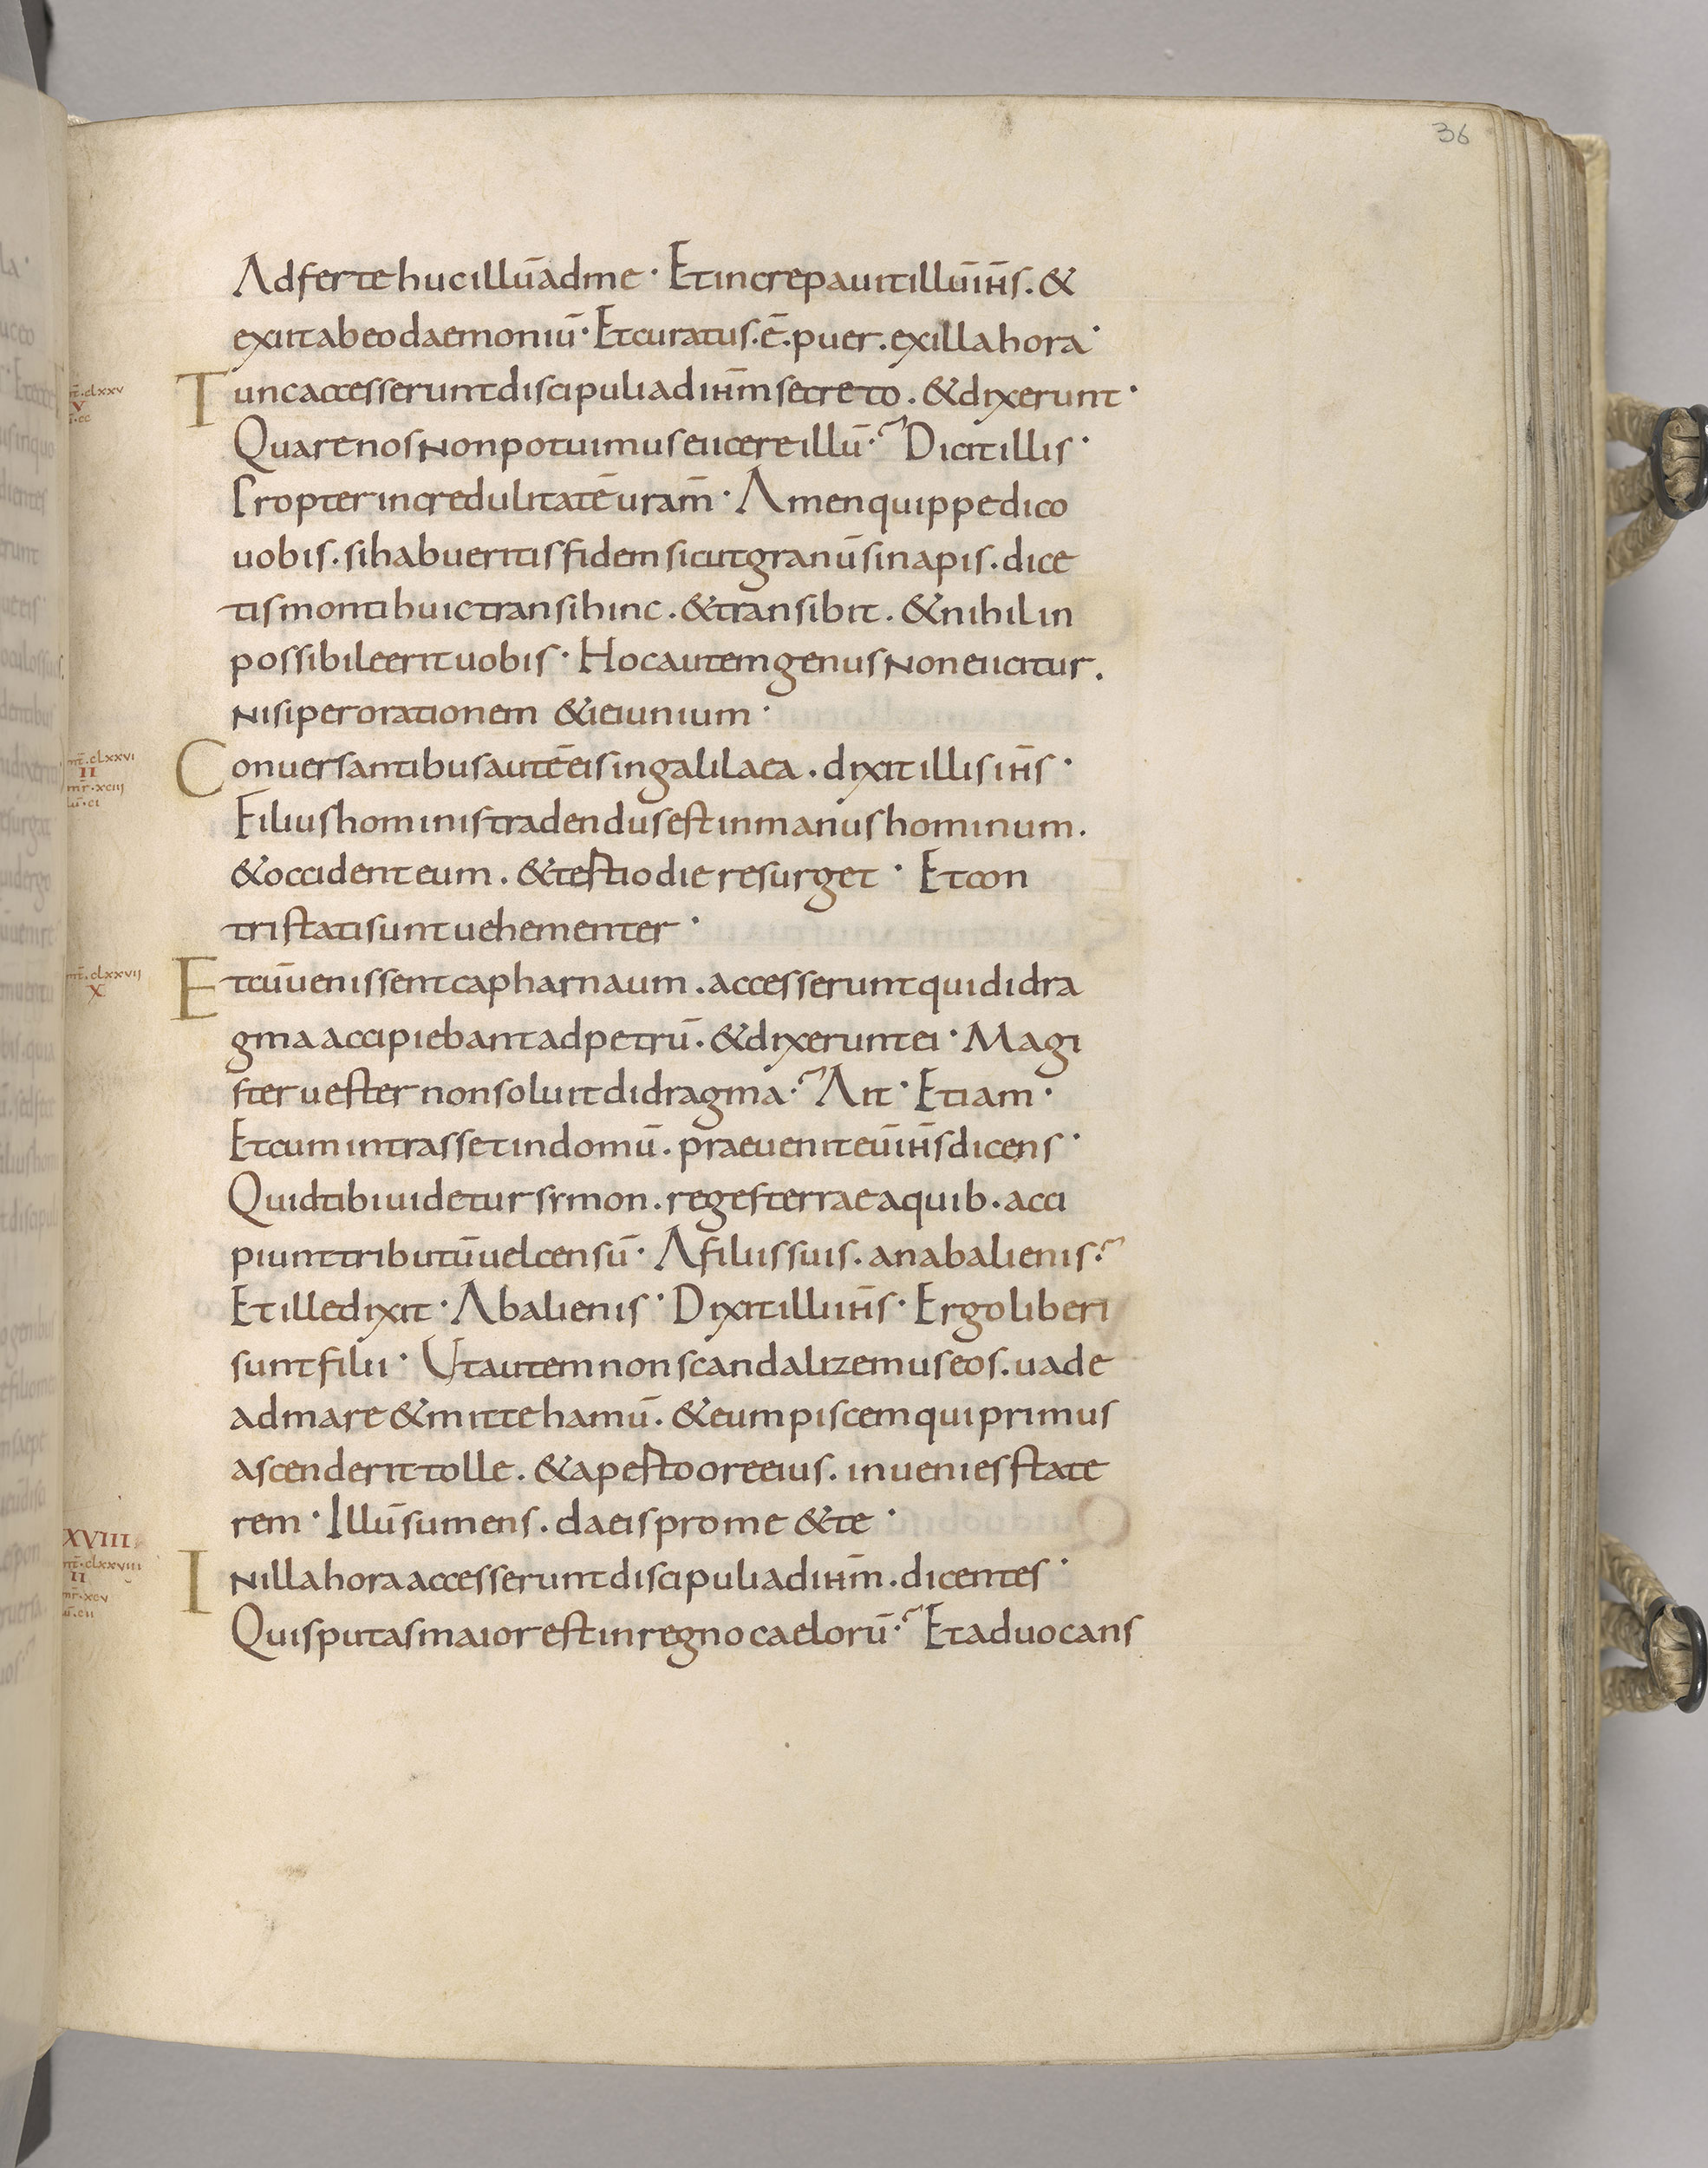 36
Adferte huc illū ad me · Et increpauit illū ih̄s . &
exiit ab eo daemoniū · Et curatus . ē . puer . ex illa hora ·
mt̄ . clxxv
V
Tunc accesserunt discipuli ad ih̄m secreto . & dixerunt ·
Quare nos non potuimus eiicere illū ·? Dicit illis ·
Propter incredulitatē uram̄ · Amen quippe dico
uobis . si habueritis fidem sicut granū sinapis . dice
tis monti huic transi hinc . & transibit . & nihil in
possibile erit uobis · Hoc autem genus non eiicitur .
nisi per orationem & ieiunium ·
mt̄ . clxxvi
II
mr̄ . xciii
lū . ci
Conuersantibus autē eis in galilaea . dixit illis ih̄s ·
Filius hominis tradendus est in manus hominum .
& occident eum . & testio die resurget · Et con
tristati sunt uehementer ·
mt̄ . clxxvii
X
Et cū uenissent capharnaum . accesserunt qui didra
gma accipiebant ad petrū . & dixerunt ei · Magi
ster uester non soluit didragma ·? Ait · Etiam ·
Et cum intrasset in domū . praeuenit eū ih̄s dicens ·
Quid tibi uidetur symon . reges terrae a quib . acci
piunt tributū uel censū · A filiis suis . an ab alienis ·?
Et ille dixit · Ab alienis · Dixit illi ih̄s · Ergo liberi
sunt filii · Ut autem non scandalizemus eos . uade
ad mare & mitte hamū . & eum piscem qui primus
ascenderit tolle . & apesto ore eius . inuenies state
rem · Illū sumens . da eis pro me & te ·
XVIII
mt̄ . clxxviii
II
mr̄ . xcv
lū . cii
In illa hora accesserunt discipuli ad ih̄m . dicentes ·
Quis putas maior est in regno caelorū ·? Et aduocans